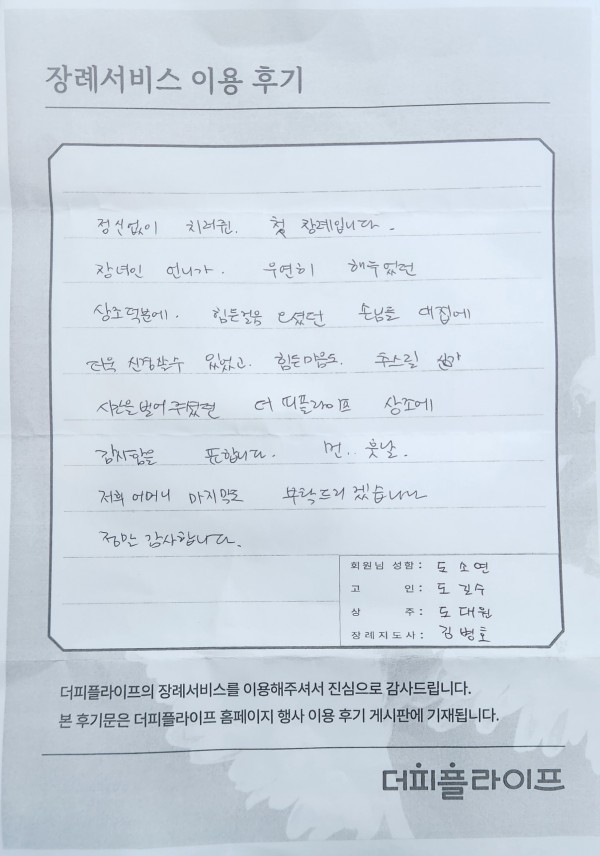 장례서비스 이용 후기
정신없이 치러준. 첫 장례입니다.
장녀인 언니가. 우연히 해두었던
상조덕분에. 힘든걸음 오셨던 손님들 대접에
더욱 신경쓸수 있었고. 힘든마음도. 추스릴
시간을 벌어 주셨던 더 피플라이프 상조에
감사함을 표합니다. 먼.. 훗날.
저희 어머니 마지막도 부탁드리겠습니다
정말 감사합니다.
회원님 성함 : 도 소 연
고 인 : 도 길 수
상 주 : 도 대 원
장례지도사 : 김 병 호
더피플라이프의 장례서비스를 이용해주셔서 진심으로 감사드립니다.
본 후기문은 더피플라이프 홈페이지 행사 이용 후기 게시판에 기재됩니다.
더피플라이프